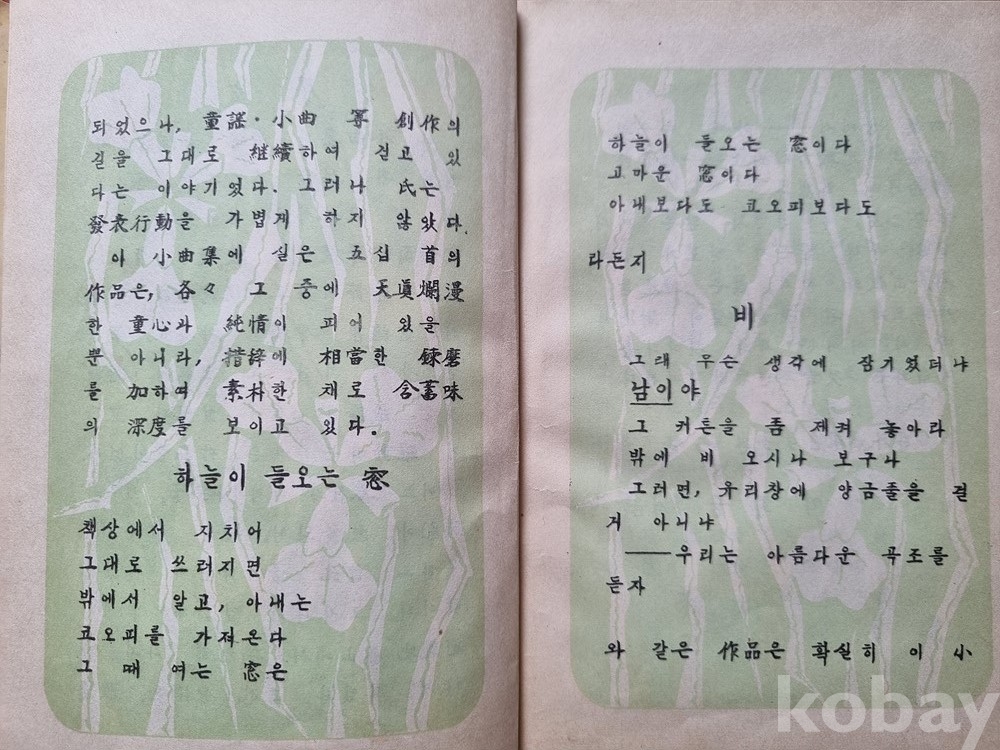 되었으나, 童謠·小曲 等 創作의
길을 그대로 継續하여 걷고 있
다는 이야기였다. 그러나 氏는
發表行動을 가볍게 하지 않았다.
이 小曲集에 실은 五십 首의
作品은, 各々 그 중에 天眞爛漫
한 童心과 純情이 피어 있을
뿐 아니라, 措辞에 相當한 錬磨
를 加하여 素朴한 채로 含蓄味
의 深度를 보이고 있다.
하늘이 들오는 窓
책상에서 지치어
그대로 쓰러지면
밖에서 알고, 아내는
코오피를 가져온다
그 때 여는 窓은
하늘이 들오는 窓이다
고마운 窓이다
아내보다도 코오피보다도
라든지
비
그대 무슨 생각에 잠기었더냐
남이야
그 커튼을 좀 제켜 놓아라
밖에 비 오시나 보구나
그러면, 유리창에 양금줄을 걸
거 아니냐
──우리는 아름다운 곡조를
듣자
와 같은 作品은 확실히 이 小
kobay